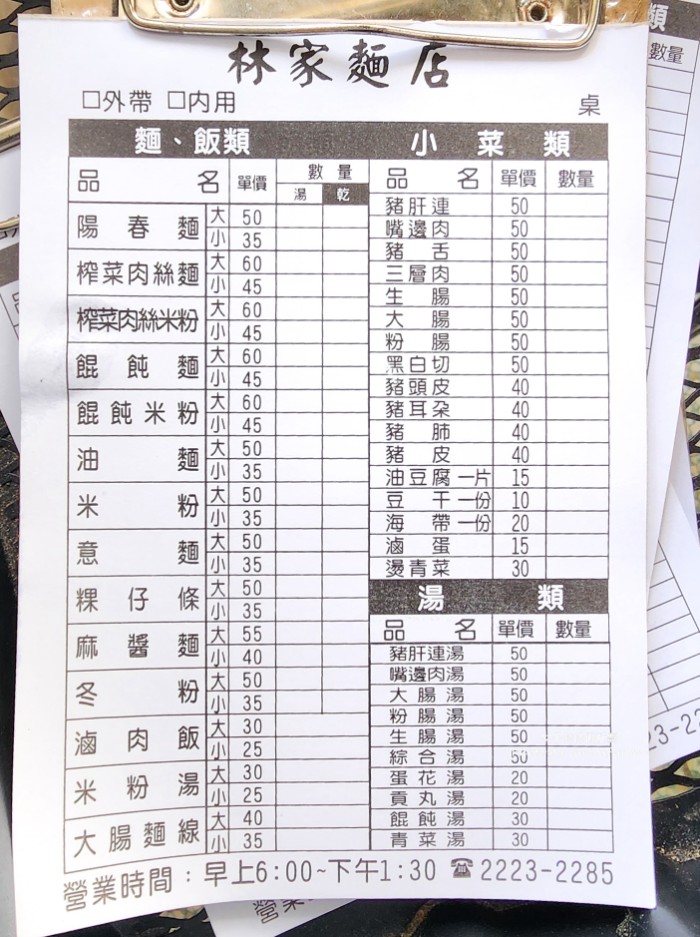 林家麵店
□外帶 □内用 桌
麵、飯類
品名 單價 數量
湯 乾
陽春麵 大 50
小 35
榨菜肉絲麵 大 60
小 45
榨菜肉絲米粉 大 60
小 45
餛飩麵 大 60
小 45
餛飩米粉 大 60
小 45
油麵 大 50
小 35
米粉 大 50
小 35
意麵 大 50
小 35
粿仔條 大 50
小 35
麻醬麵 大 55
小 40
冬粉 大 50
小 35
滷肉飯 大 30
小 25
米粉湯 大 30
小 25
大腸麵線 大 40
小 35
小菜類
品名 單價 數量
豬肝連 50
嘴邊肉 50
豬舌 50
三層肉 50
生腸 50
大腸 50
粉腸 50
黑白切 50
豬頭皮 40
豬耳朵 40
豬肺 40
豬皮 40
油豆腐一片 15
豆干一份 10
海帶一份 20
滷蛋 15
燙青菜 30
湯類
品名 單價 數量
豬肝連湯 50
嘴邊肉湯 50
大腸湯 50
粉腸湯 50
生腸湯 50
綜合湯 50
蛋花湯 20
貢丸湯 20
餛飩湯 30
青菜湯 30
營業時間：早上6:00~下午1:30 ☎2223-2285
類
數量
23-22
營業